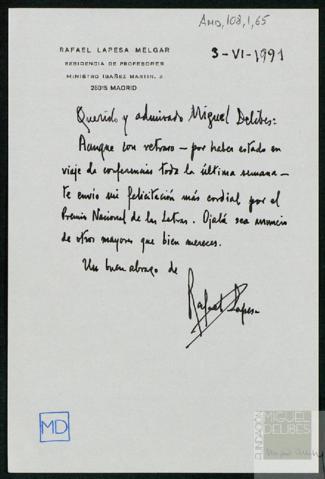 AMD, 108, 1, 65
RAFAEL LAPESA MELGAR
RESIDENCIA DE PROFESORES
MINISTRO IBAÑEZ MARTIN, 3
28015 MADRID
3-VI-1991
Querido y admirado Miguel Delibes:
Aunque con retraso – por haber estado en
viaje de conferencias toda la última semana –
te envío mi felicitación más cordial por el
Premio Nacional de las Letras. Ojalá sea anuncio
de otros mayores que bien mereces.
Un buen abrazo de
Rafael Lapesa
MD
FUNDACIÓN
MIGUEL
DELIBES